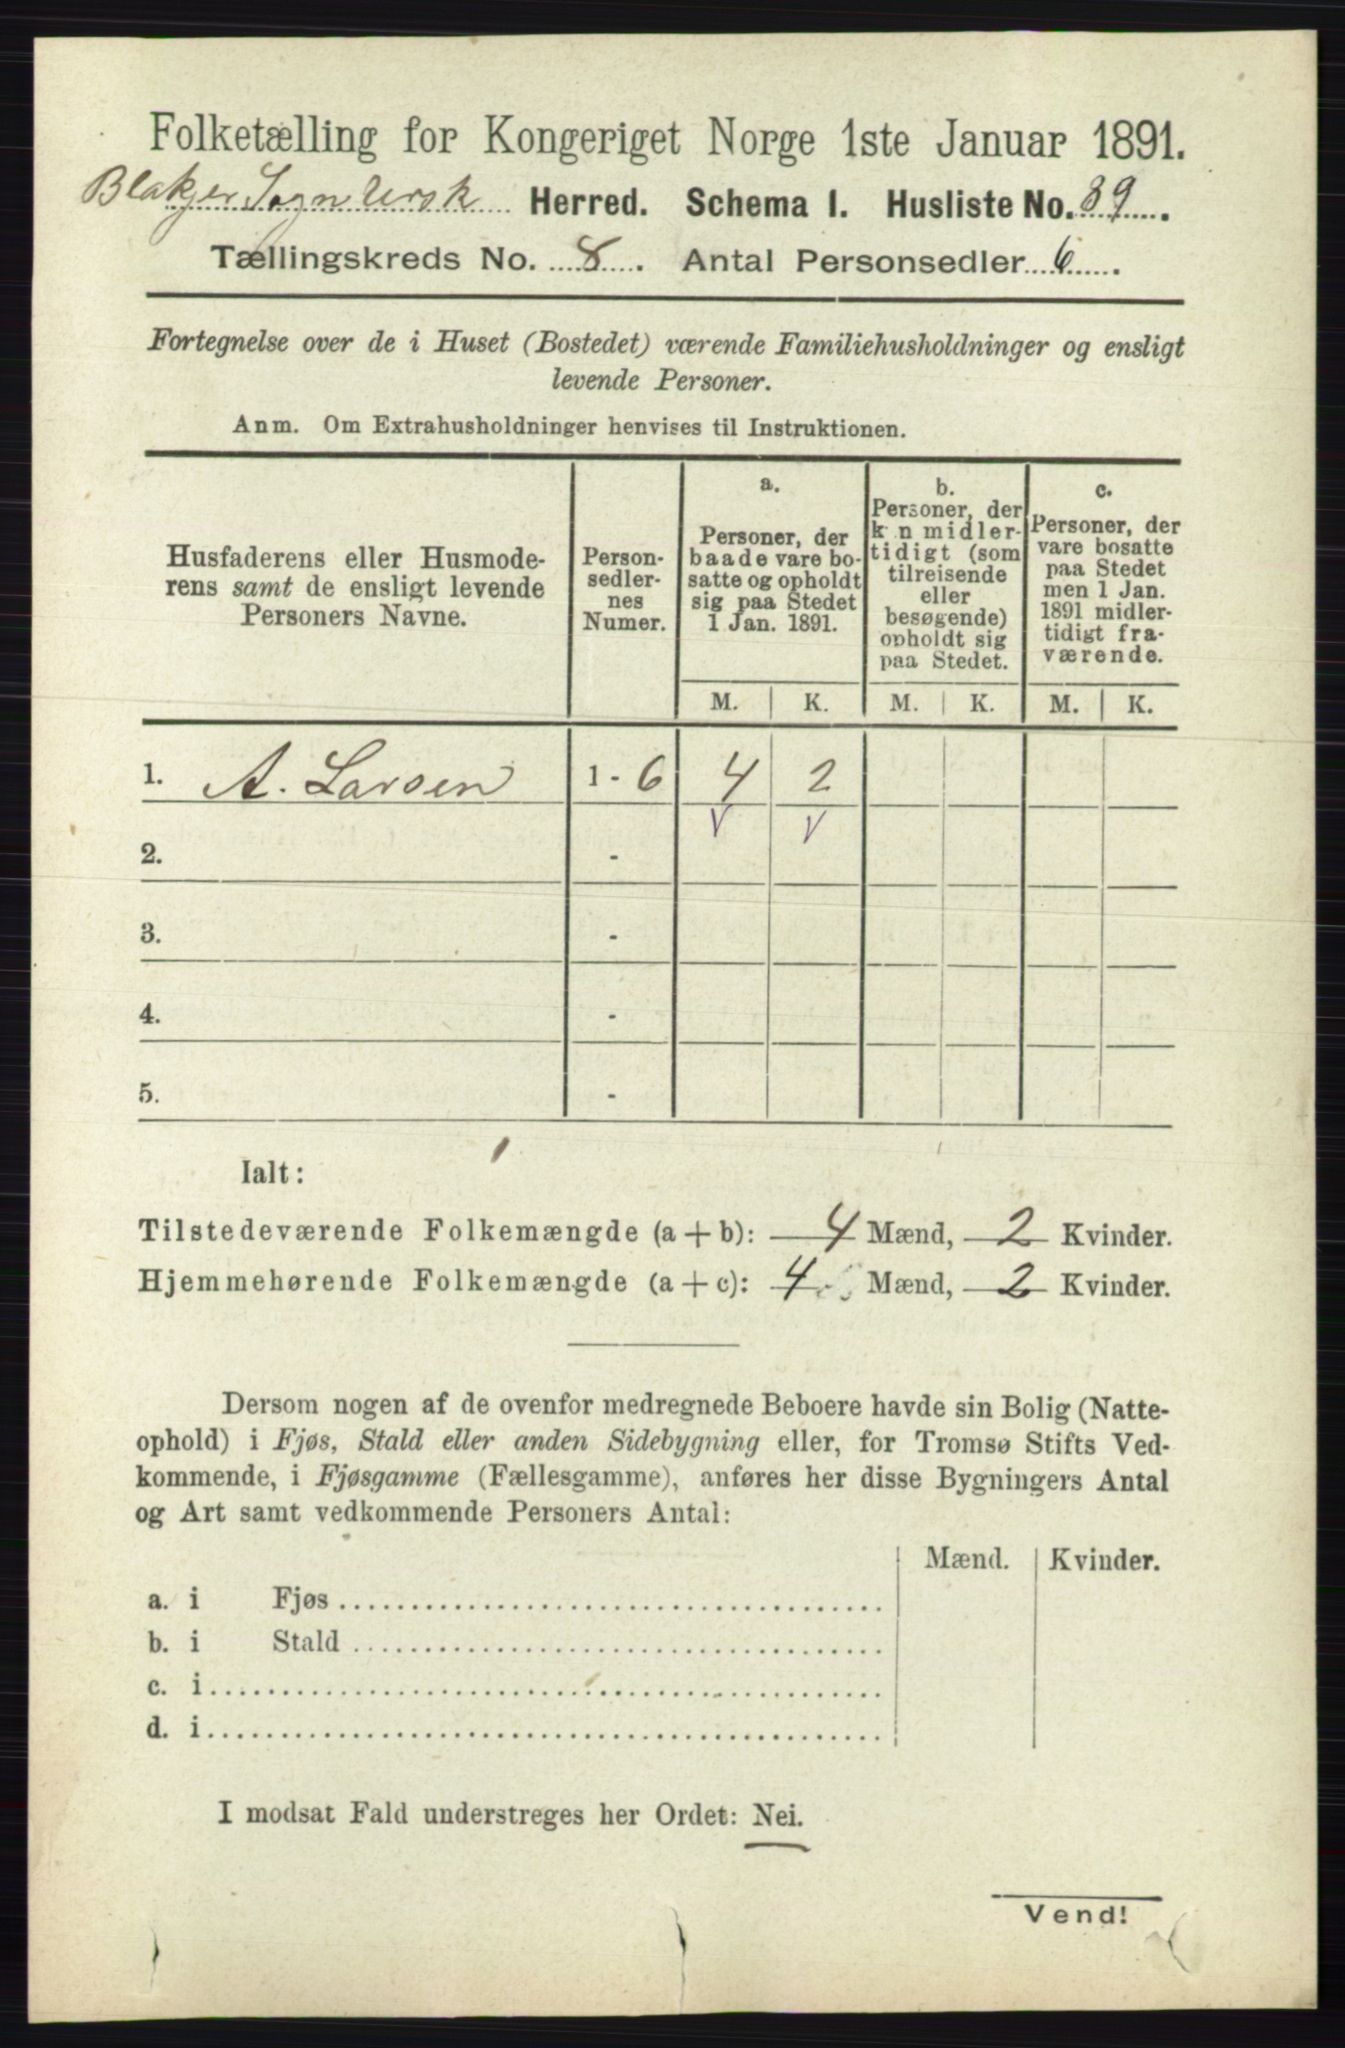 Folketælling for Kongeriget Norge 1ste Januar 1891.
Blakjer Sogn Ursk Herred. Schema 1. Husliste No. 89.
Tællingskreds No. 8. Antal Personsedler 6.
Fortegnelse over de i Huset (Bostedet) værende Familiehusholdninger og ensligt
levende Personer.
Anm. Om Extrahusholdninger henvises til Instruktionen.
Husfaderens eller Husmode-
rens samt de ensligt levende
Personers Navne.
Person-
sedler-
nes
Numer.
a.
Personer, der
baade vare bo-
satte og opholdt
sig paa Stedet
1 Jan. 1891.
b.
Personer, der
k n midler-
tidigt (som
tilreisende
eller
besøgende)
opholdt sig
paa Stedet.
c.
Personer, der
vare bosatte
paa Stedet
men 1 Jan.
1891 midler-
tidigt fra-
værende.
M. K. M. K. M. K.
1. A. Larsen 1 - 6 4 2
V V
2. -
3. -
4. -
5. -
Ialt:
Tilstedeværende Folkemængde (a + b): 4 Mænd, 2 Kvinder.
Hjemmehørende Folkemængde (a + c): 4 Mænd, 2 Kvinder.
Dersom nogen af de ovenfor medregnede Beboere havde sin Bolig (Natte-
ophold) i Fjøs, Stald eller anden Sidebygning eller, for Tromsø Stifts Ved-
kommende, i Fjøsgamme (Fællesgamme), anføres her disse Bygningers Antal
og Art samt vedkommende Personers Antal:
Mænd. Kvinder.
a. i Fjøs
b. i Stald
c. i
d. i
I modsat Fald understreges her Ordet: Nei.
Vend!